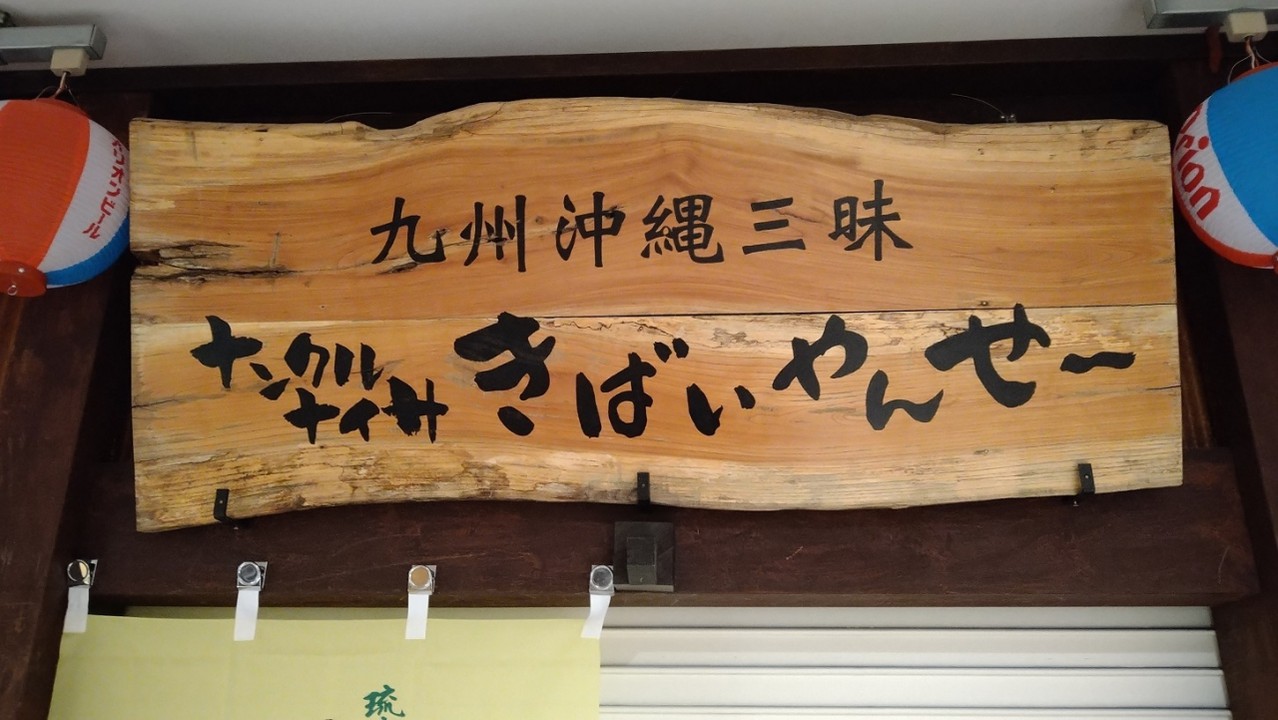 九州沖縄三昧
ナンクル
ナイサ
きばいやんせー
オリオンビール
Orion
琉